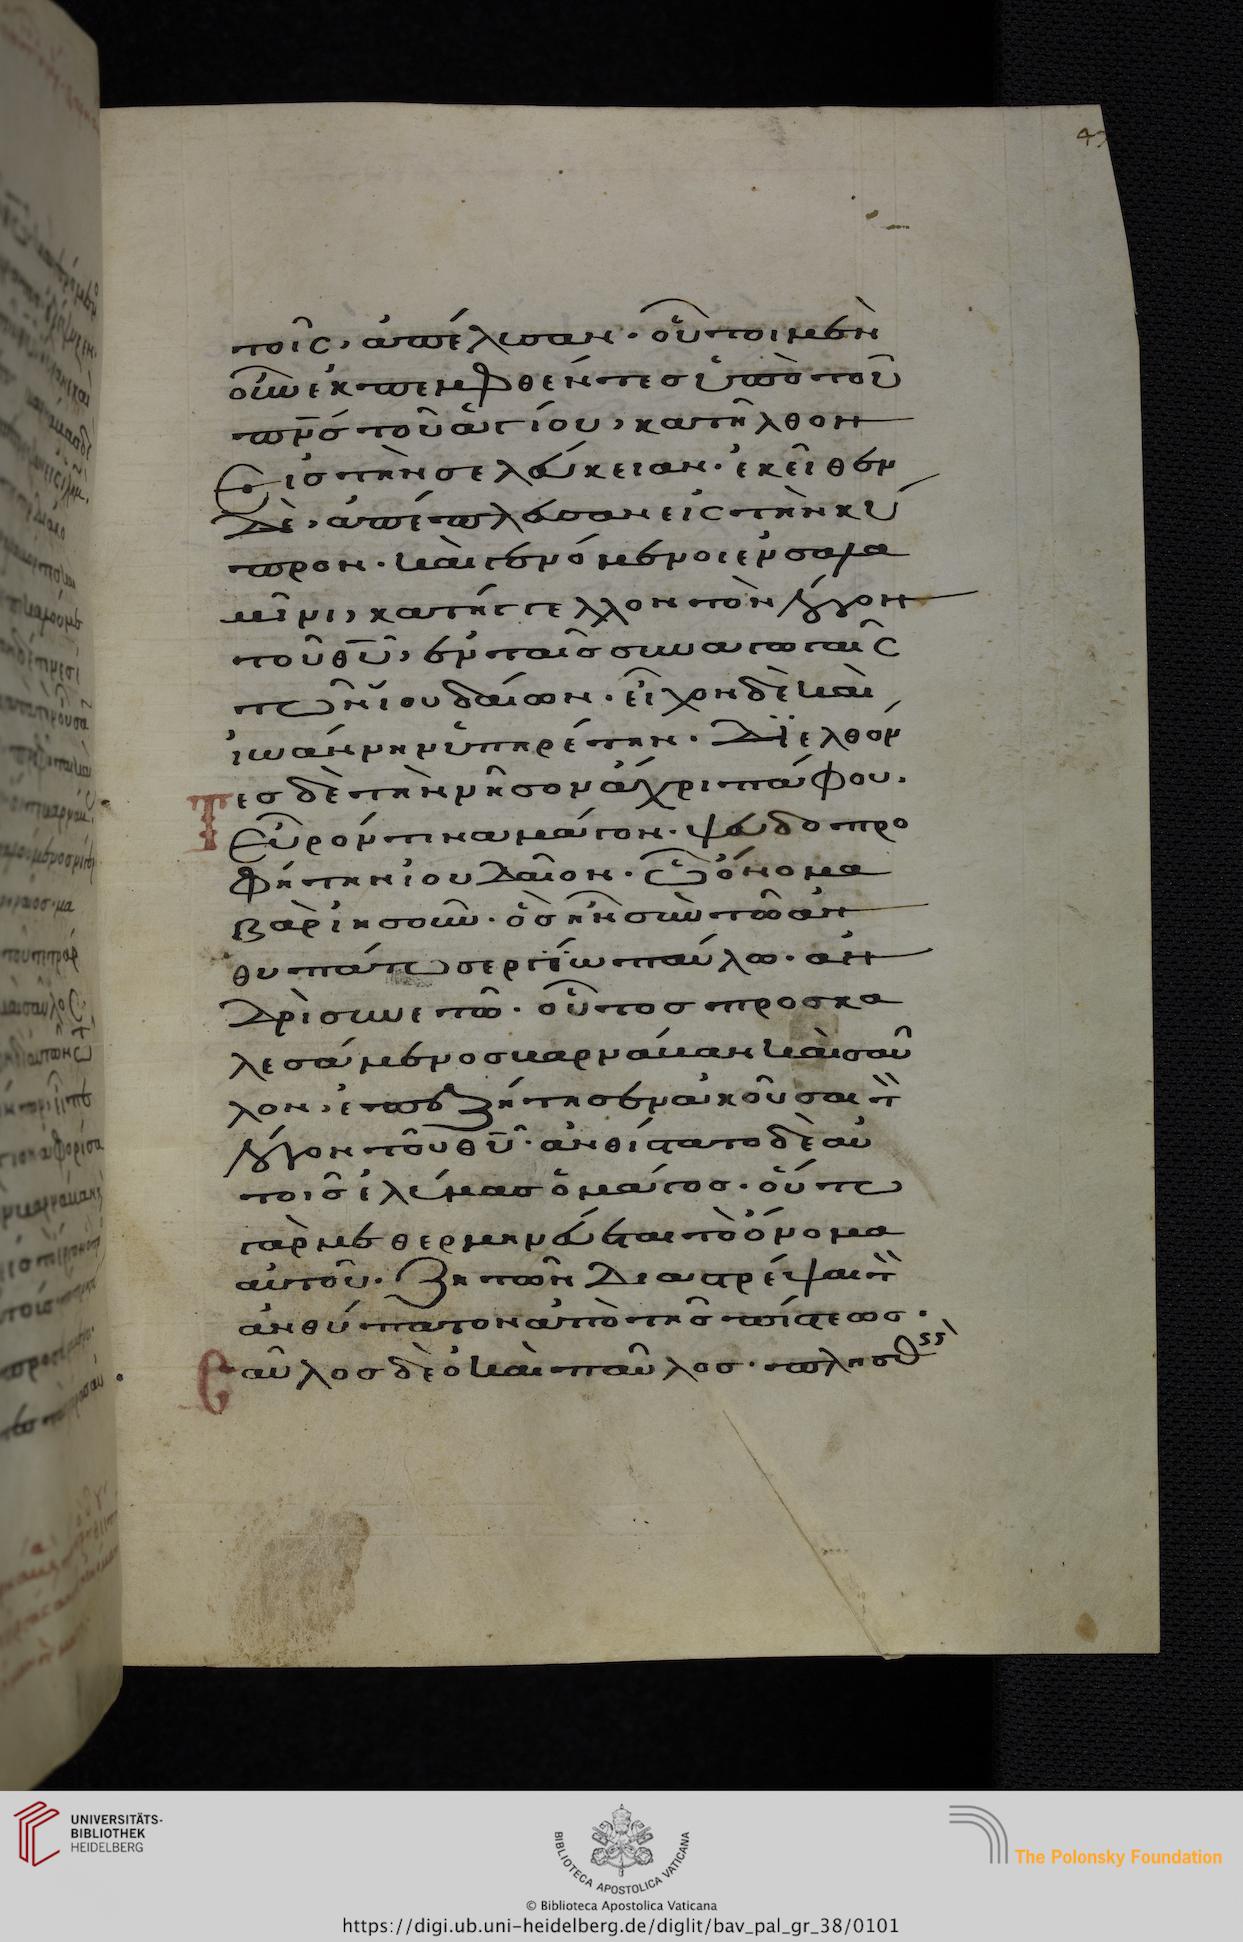 47
τοῖς, ἀπέλυσαν· οὗτοι μὲν
οὖν ἐκπεμφθέντες ὑπὸ τοῦ
πν̅ς τοῦ ἁγίου, κατῆλθον
εἰς τὴν σελεύκειαν· ἐκεῖθεν
δὲ, ἀπέπλευσαν εἰς τὴν κύ
προν· καὶ γενόμενοι ἐν σαλα
μῖνι, κατήγγελλον τὸν λόγον
τοῦ θυ̅, ἐν ταῖς συναγωγαῖς
τῶν ἰουδαίων· εἶχον δὲ καὶ
ἰωάννην ὑπηρέτην· Διελθόν
τες δὲ τὴν νῆσον ἄχρι πάφου·
εὗρόν τινα μάγον· ψευδοπρο
φήτην ἰουδαῖον· ᾧ ὄνομα
βαριησοῦν· ὃς ἦν σὺν τῷ ἀν
θυπάτω σεργίω παύλω· ἀν
δρὶ συνετῷ· οὗτος προσκα
λεσάμενος βαρνάβαν καὶ σαῦ
λον, ἐπεζήτησεν ἀκοῦσαι τὸν
λόγον τοῦ θυ̅· ἀνθίστατο δὲ αὐ
τοῖς ἐλύμας ὁ μάγος· οὕτω
γὰρ μεθερμηνεύεται τὸ ὄνομα
αὐτοῦ· ζητῶν διαστρέψαι τὸν
ἀνθύπατον ἀπὸ τῆς πίστεως·
Σαῦλος δὲ ὁ καὶ παῦλος· πλησθεὶς
UNIVERSITÄTS-
BIBLIOTHEK
HEIDELBERG
BIBLIOTECA APOSTOLICA VATICANA
The Polonsky Foundation
© Biblioteca Apostolica Vaticana
https://digi.ub.uni-heidelberg.de/diglit/bav_pal_gr_38/0101